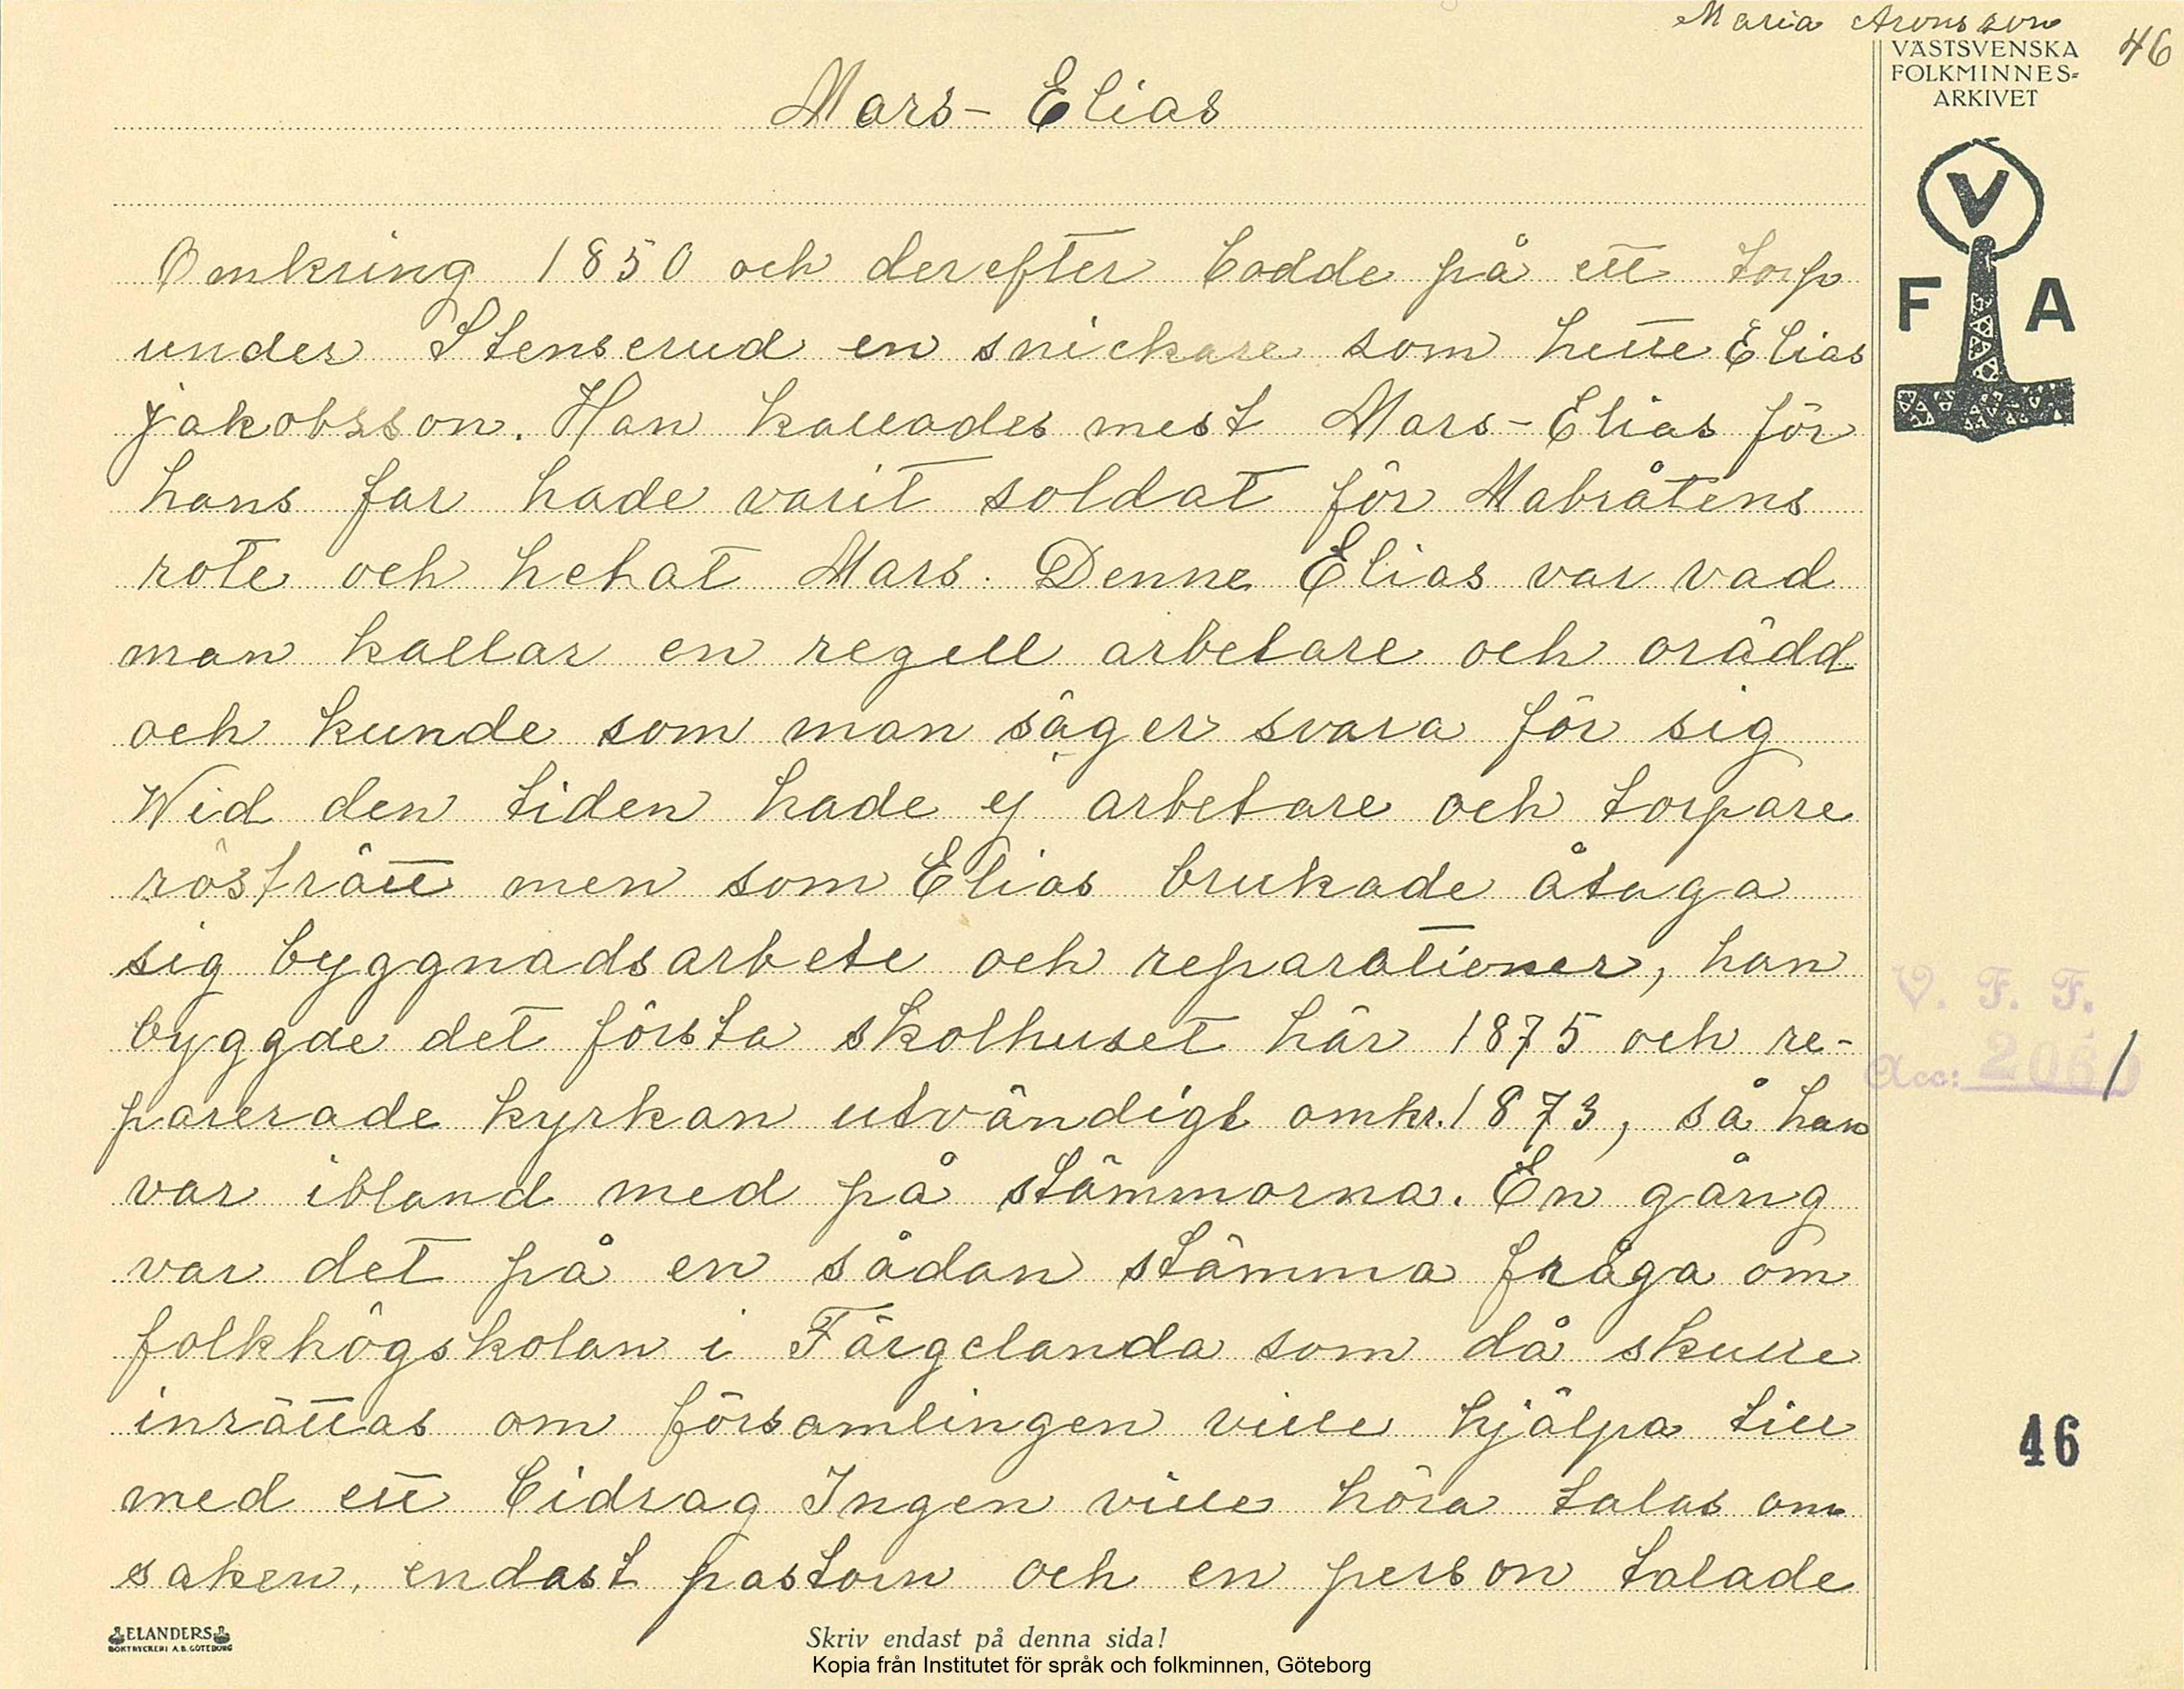 Maria Aronsson
46
VÄSTSVENSKA
FOLKMINNES=
ARKIVET
V
F A
Mars- Elias
Omkring 1850 och derefter bodde på ett torp
under Stenserud en snickare som hette Elias
jakobsson. Han kallades mest Mars-Elias för
hans far hade varit soldat för Mabråtens
rote och hehat Mars. Denne Elias var vad
man kallar en regell arbetare och orädd
och kunde som man säger svara för sig
Wid den tiden hade ej arbetare och torpare
rösträtt men som Elias brukade åtaga
sig byggnadsarbete och reparationer, han
byggde det första skolhuset här 1875 och re-
parerade kyrkan utvändigt omkr. 1873, så han
var ibland med på stämmorna. En gång
var det på en sådan stämma fråga om
folkhögskolan i Färgelanda som då skulle
inrättas om församlingen ville hjälpa till
med ett bidrag Ingen ville höra talas om
saken, endast pastorn och en person talade
V. F. F.
Acc:
46
ELANDERS
BOKTRYCKERI A.B. GÖTEBORG
Skriv endast på denna sida!
Kopia från Institutet för språk och folkminnen, Göteborg